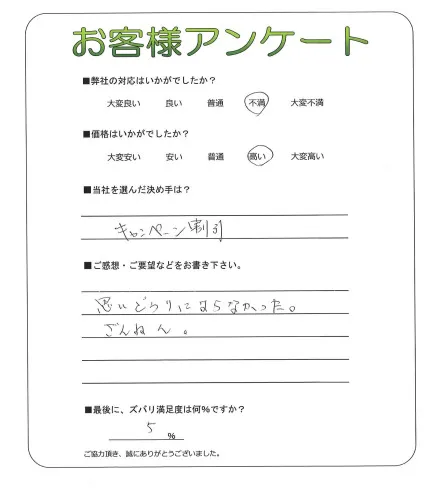 お客様アンケート
■弊社の対応はいかがでしたか？
大変良い 良い 普通 不満 大変不満
■価格はいかがでしたか？
大変安い 安い 普通 高い 大変高い
■当社を選んだ決め手は？
キャンペーン割引
■ご感想・ご要望などをお書き下さい。
思いどうりにならなかった。
ざんねん。
■最後に、ズバリ満足度は何%ですか？
5
%
ご協力頂き、誠にありがとうございました。